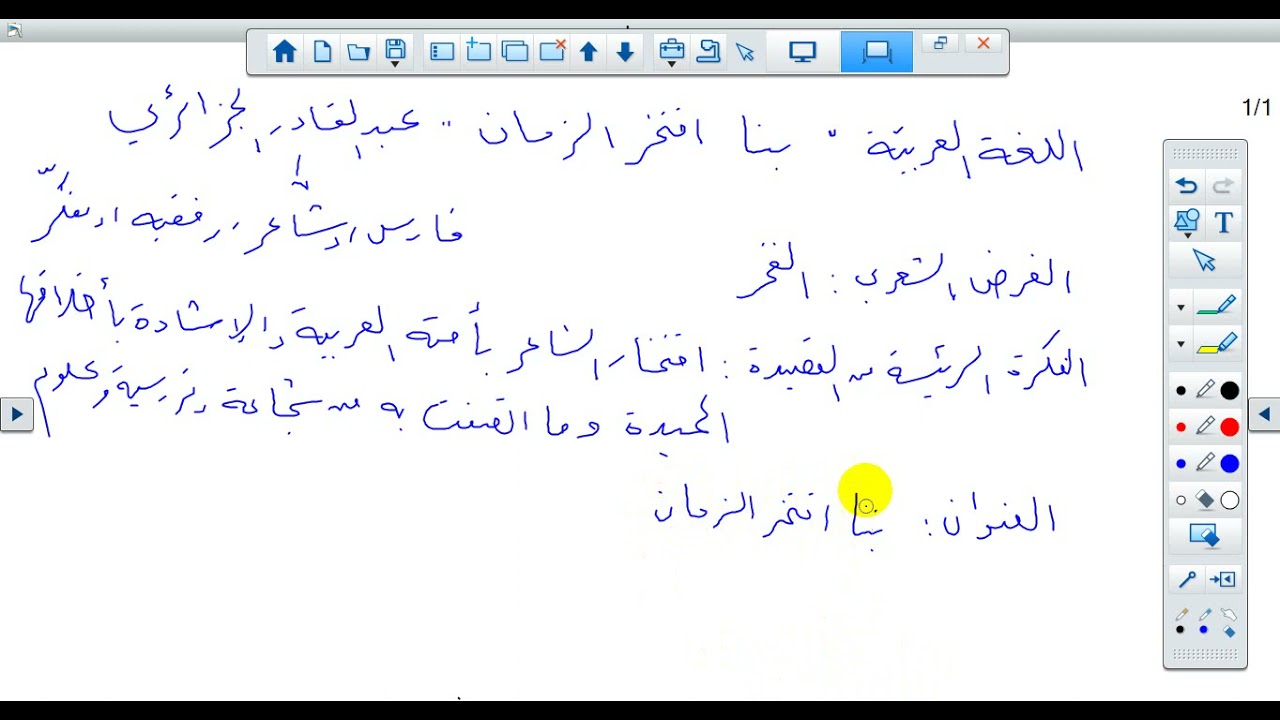 1/1
اللغة العربية " بنا افتخر الزمان " عبد القادر الجزائري
فارس و شاعر و فقيه و مفكّر
الغرض الشعري : الفخر
الفكرة الرئيسة من القصيدة : افتخار الشاعر بأمته العربية والإشادة بأخلاقها
الحميدة وما اتصفت به من شجاعة وفروسية وعلوم
العنوان : بنا افتخر الزمان
T